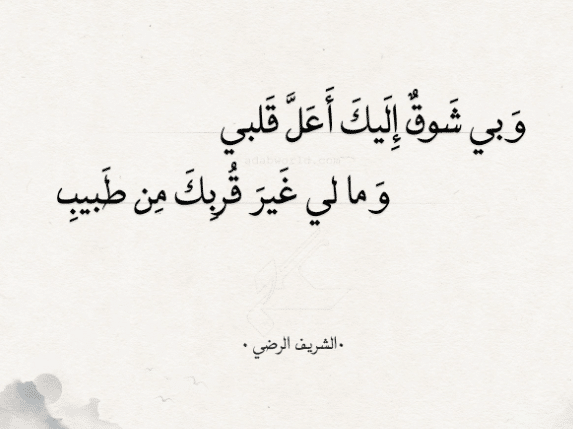 وَ بي شَوقٌ إِلَيكَ أَعَلَّ قَلبي
adabworld.com
وَ ما لي غَيرَ قُربِكَ مِن طَبيبِ
•الشريف الرضي •